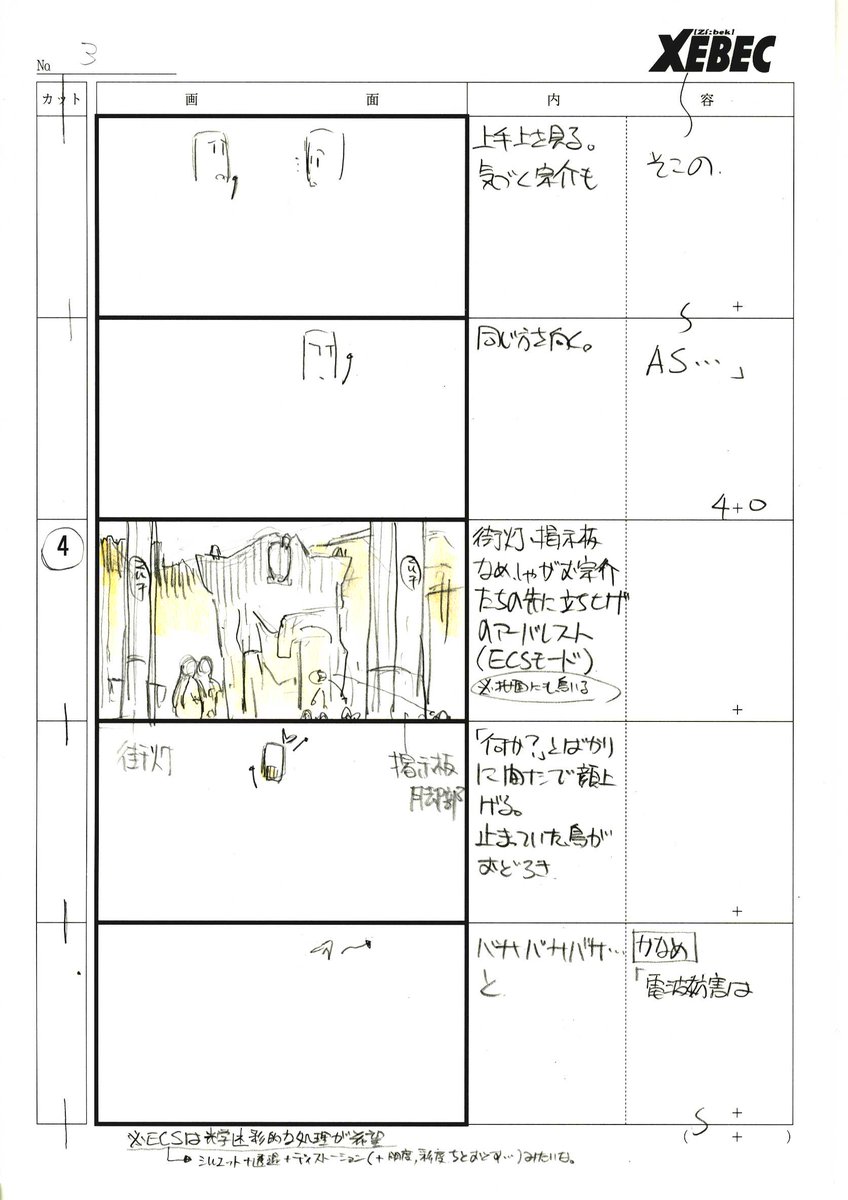 No. 3
[Zí:bek]
XEBEC
カット 画 面 内 容
上手上を見る。
気づく宗介も
そこの
+
同じ方を向く。
AS…」
4+0
4
街灯、掲示板
なめ、しゃがむ宗介
たちの先に立ち上げ
のアーバレスト
(ECSモード)
にも鳥いる
+
街灯
掲示板
脚部
「何か?」とばかり
に
顔上
げる。
止まっていた鳥が
おどろき
+
バサバサバサ…
と
かなめ
「電波妨害は
+
( + )
※ECSは光学迷彩的な処理が希望
シルエット+透過+ディストーション(+明度,彩度ちとおとす…)みたいな。